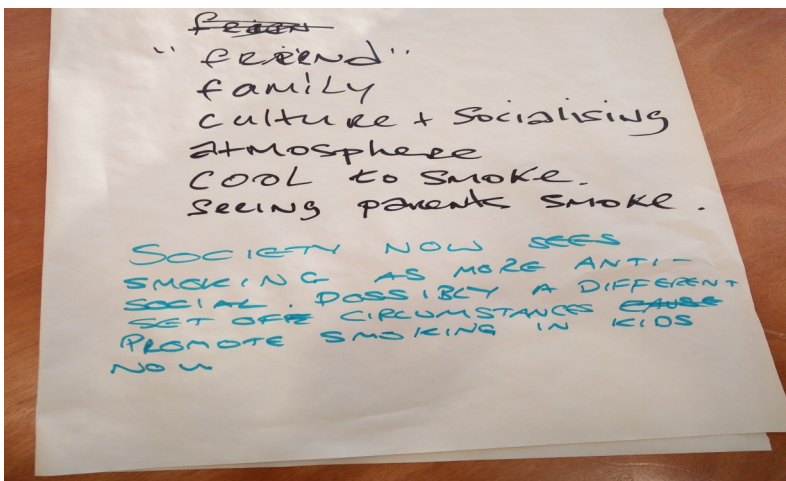 "friend"
family
culture + socialising
atmosphere
cool to smoke.
seeing parents smoke.
SOCIETY NOW SEES
SMOKING AS MORE ANTI-
SOCIAL. POSSIBLY A DIFFERENT
SET OF CIRCUMSTANCES CAUSE
PROMOTE SMOKING IN KIDS
NOW